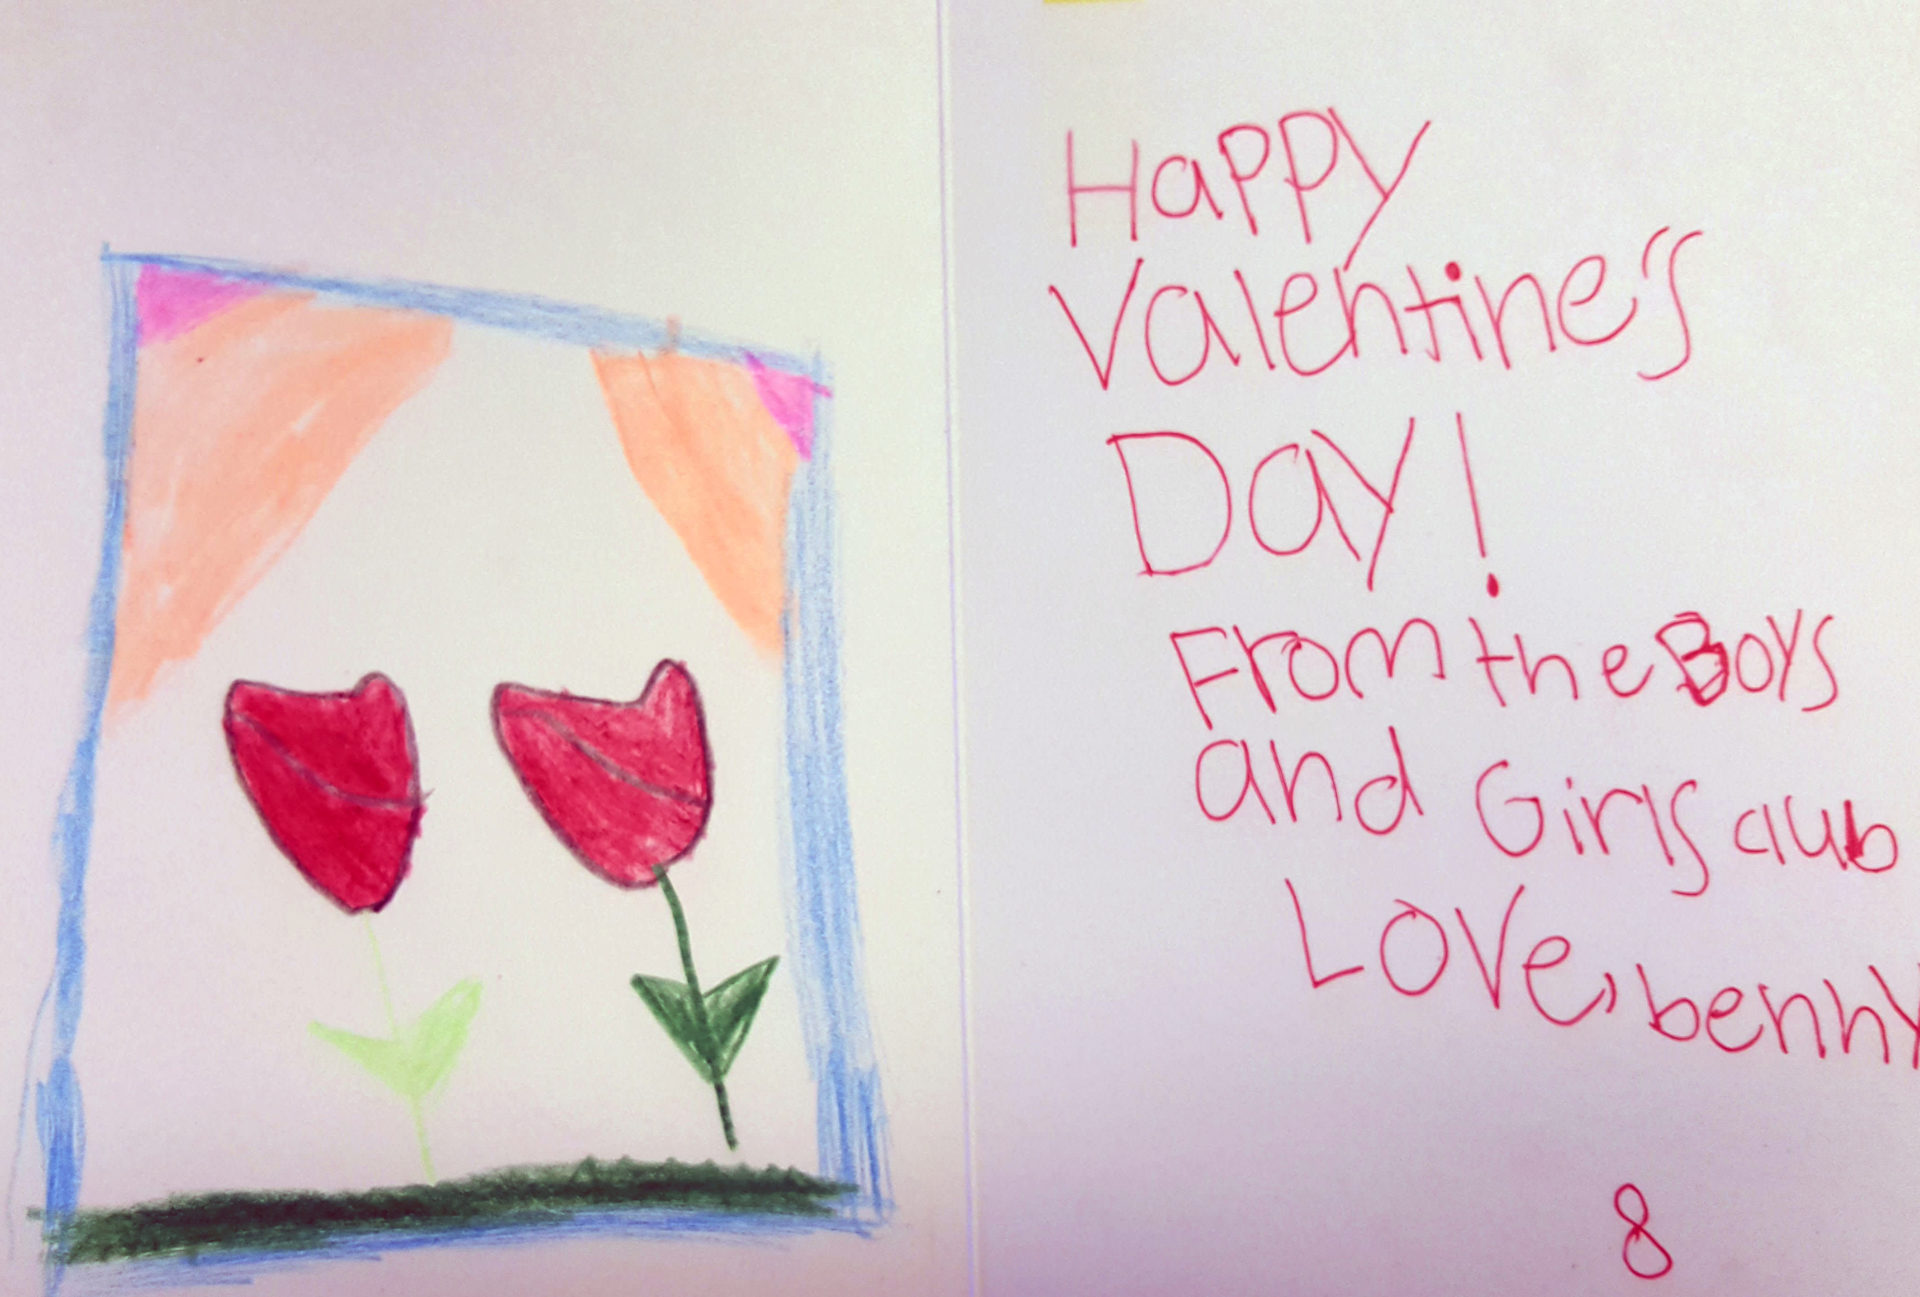 Happy
Valentine's
Day!
From the Boys
and Girls club
Love, benny
8